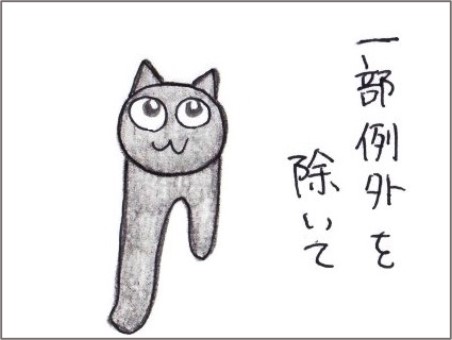 一部例外を
除いて